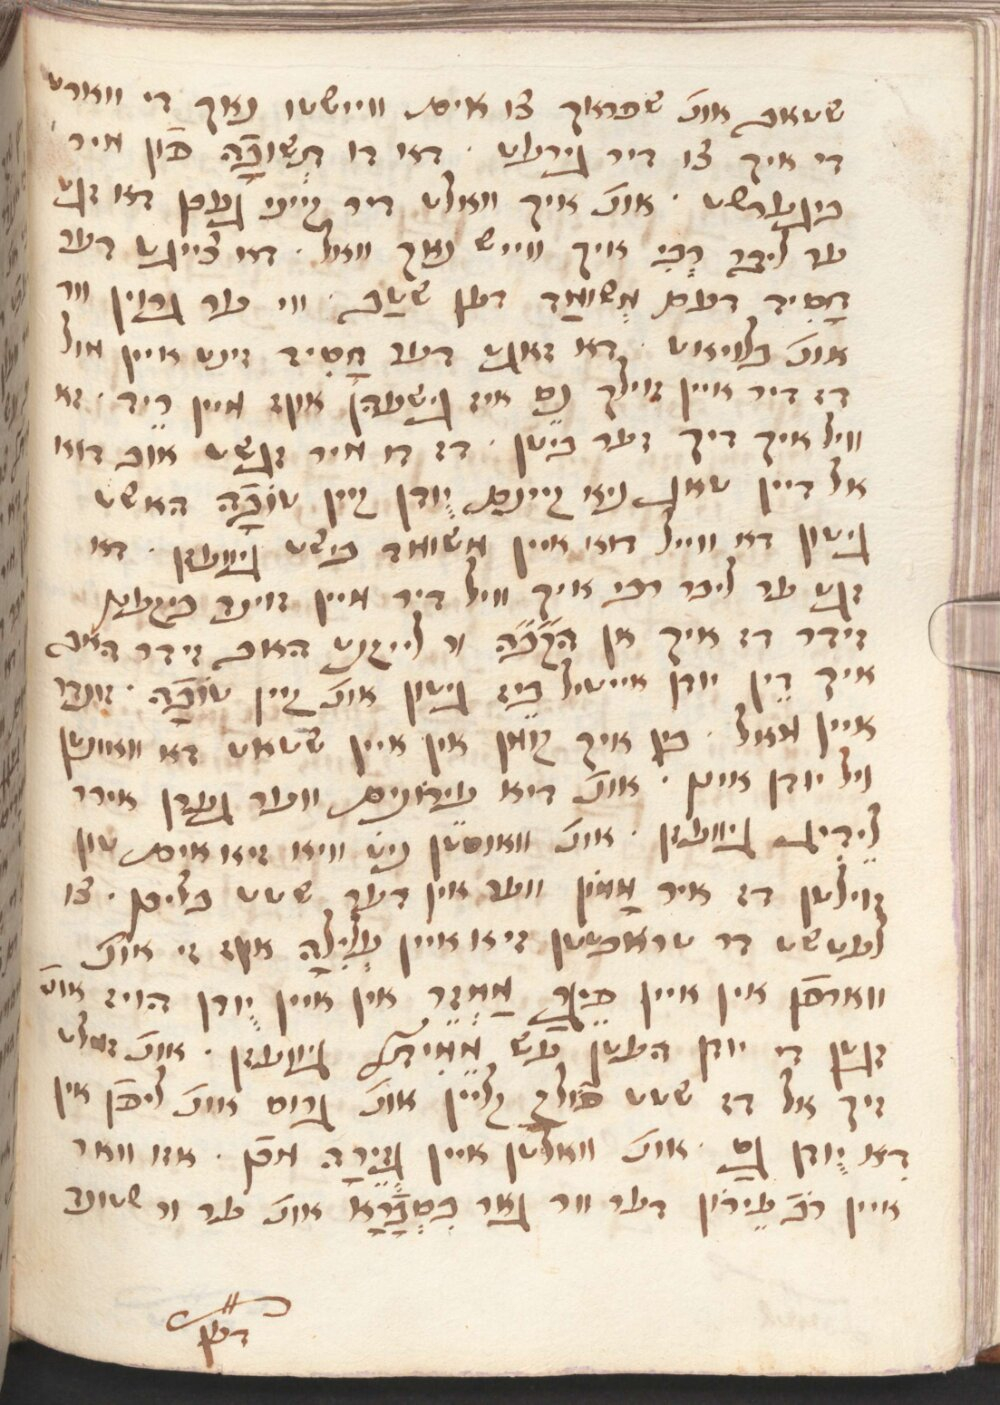 שטאב אונ' שפראך צו אים ווישטו נאך די ווארט
די איך צו דיר גירעט · דאז דו תְּשׁוּבָֿה פֿון מיר
ביגערשט · אונ' איך וואלט דיר קייני געבן דא זגט
ער ליבר רַבִּי איך ווייש נאך וואל · דא צייגט דער
חָסִיד דעם מְשׁוּמָד דען שטאב · ווי ער גרוין וור
אונ' בלויאט · דא זאגט דער חָסִיד זינט איין מול
דז דיר איין זוילך נֵס איז גישעהן אונ' מיין ריד · זא
וויל איך דיך דער ביטן · דז דו מיר זגשט אוב דוא
אל דיין טאג ניא קיינם יוּדן קיין טוֹבָֿה האשט
גיטון דא ווייל דוא איין מְשׁוּמד בישט גיוועזן · דא
זגט ער ליבר רבי איך וויל דיר מיין זוינד
זידר דז איך אן הַקָּבָּ"ה ור לייקנט האב זידר האב
איך דֵין יודן אייטיל ביז גיטון אונ' קיין טוֹבָֿה · זונדר
איין מאול · בין איך קומן אין איין שטאט דא וואונטן
ויל יודן איין · אונ' דיא עירונים ווער גערן אירר
לֵידיג גיוועזן · אונ' וואוסטן ניט וויא זיא אים טון
זוילטן דז איר מָמוֹן ווער אין דער שטט בליבן · צו
לעטשט דר טראכטן זיא איין עֲלִילָה אונ' זי אונ'
ווארפֿן אין איין מַמְזֵר אין איין יוּדן הויז אונ'
זגטן די יודן העטן גיוועזן · אונ' זמלט
זיך אל דז שטט פֿולק קליין אונ' גרוס אונ' ליפֿן אין
דִא יוּדן גַס · אונ' וואלטן איין גְּזֵירָה מכֿן · אזו וואר
איין רֹב עֵירוֹן דער וור גאר בִּסְבָֿרָא אונ' ער ור שטונד
דען